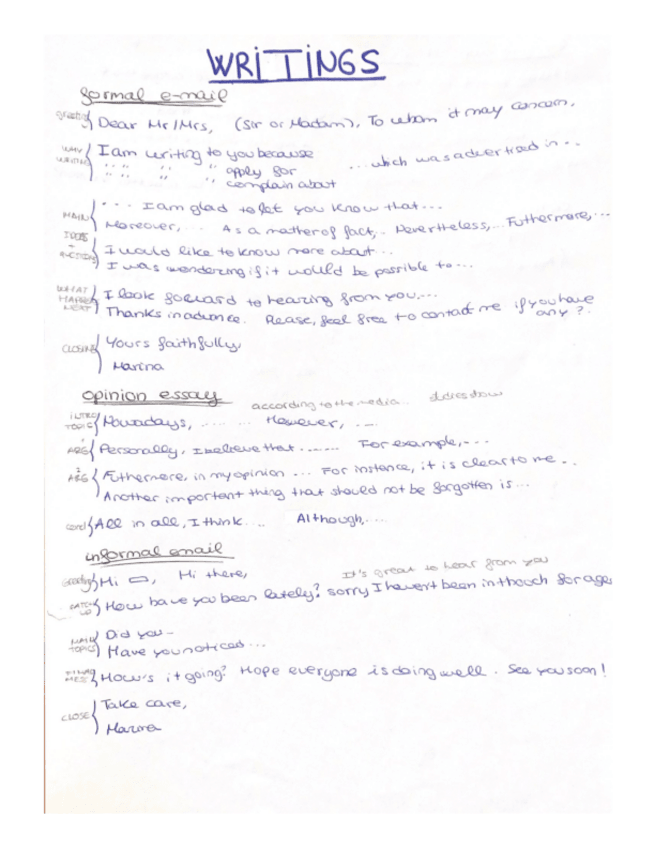 WRITINGS
formal e-mail
greeting Dear Mr/Mrs, (Sir or Madam), To whom it may concern,
WHY WRITING I am writing to you because
" " " " apply for ...which was advertised in...
complain about
... I am glad to let you know that...
MAIN IDEAS + QUESTIONS Moreover,... As a mather of fact,.. Nevertheless,.. Futhermore,...
I would like to know more about...
I was wondering if it would be possible to...
WHAT HAPPENS NEXT I look forward to hearing from you,...
Thanks in advance. Please, feel free to contact me if you have any ?.
CLOSING Yours faithfully,
Marina
opinion essay
according to the media...
INTRO TOPIC Nowadays, ...... However, ....
1 ARG Personally, I believe that ...... For example,...
2 ARG Futhermore, in my opinion ... For instance, it is clear to me ..
Another important thing that should not be forgotten is...
concl All in all, I think.... Although,....
informal email
Greeting Hi ▭, Hi there, It's great to hear from you
CATCH UP How have you been lately? sorry I haven't been in thouch for ages
MAIN TOPICS Did you...
Have you noticed...
FINAL MES How's it going? Hope everyone is doing well. See you soon!
CLOSE Take care,
Marina